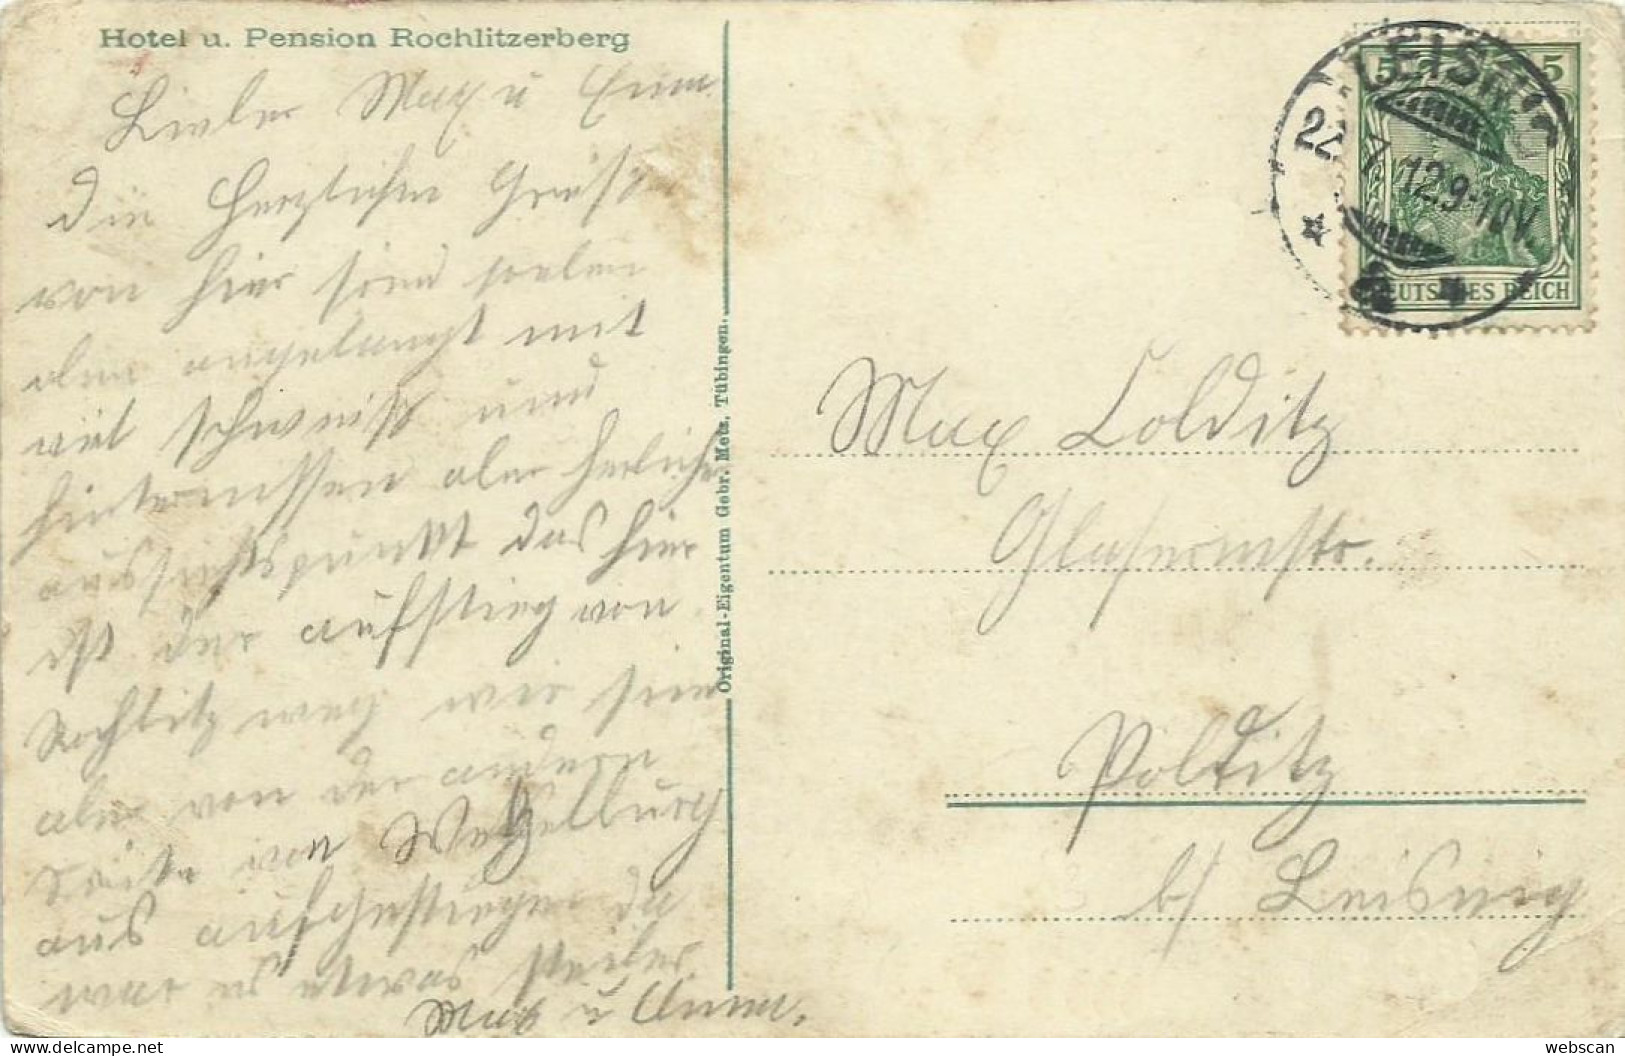 Hotel u. Pension Rochlitzerberg
Lieber Max u
die Herzlichen Grüße
von hier sind soeben
oben angelangt mit
viel schweiß und
hinternissen aber herliche
aussichtspunkt das hier
ist der aufstieg von
Rochlitz weg wir sind
aber von der andern
Seite von Wechselburg
aus aufgestiegen da
war es etwas steiler
Max u Anna.
Original-Eigentum Gebr. Metz, Tübingen.
LEISNIG
22.7.12.9-10V.
5 5
DEUTSCHES REICH
Max Colditz
Glasermstr.
Polditz
b/ Leisnig
webscan